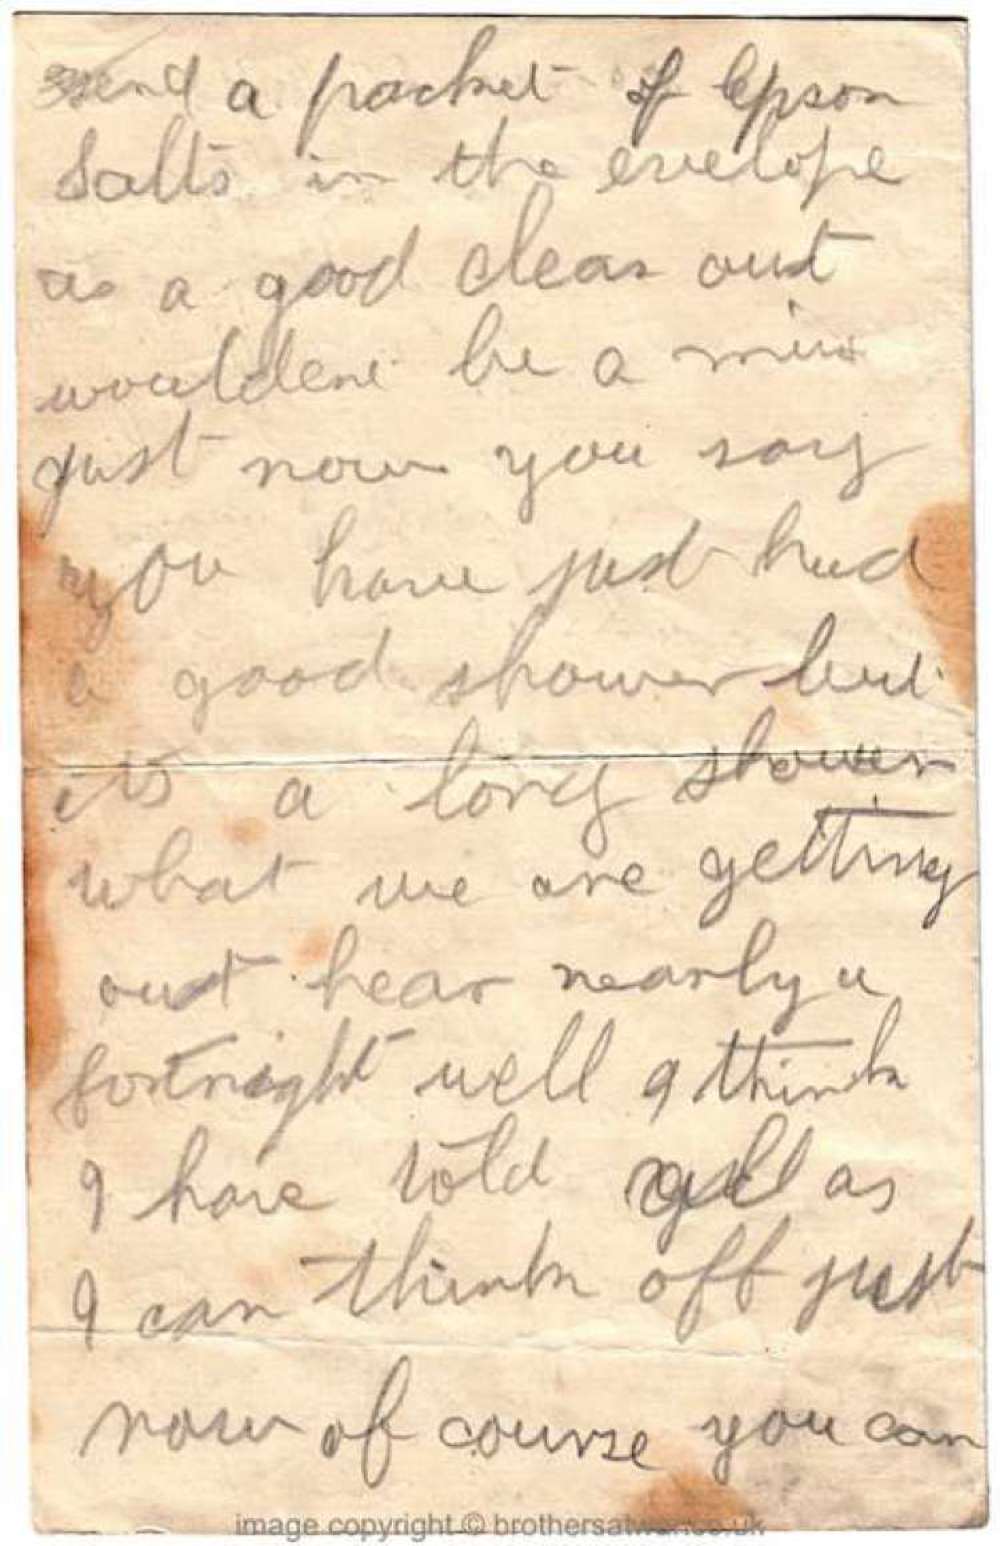 send a packet of Epson
Salts in the evelope
as a good clean out
wouldent be a miss
just now you say
you have just had
a good shower but
its a long shower
what we are getting
out hear nearly a
fortnight well I think
I have told all as
I can think off just
now of course you can
image copyright © brothersatwar.co.uk